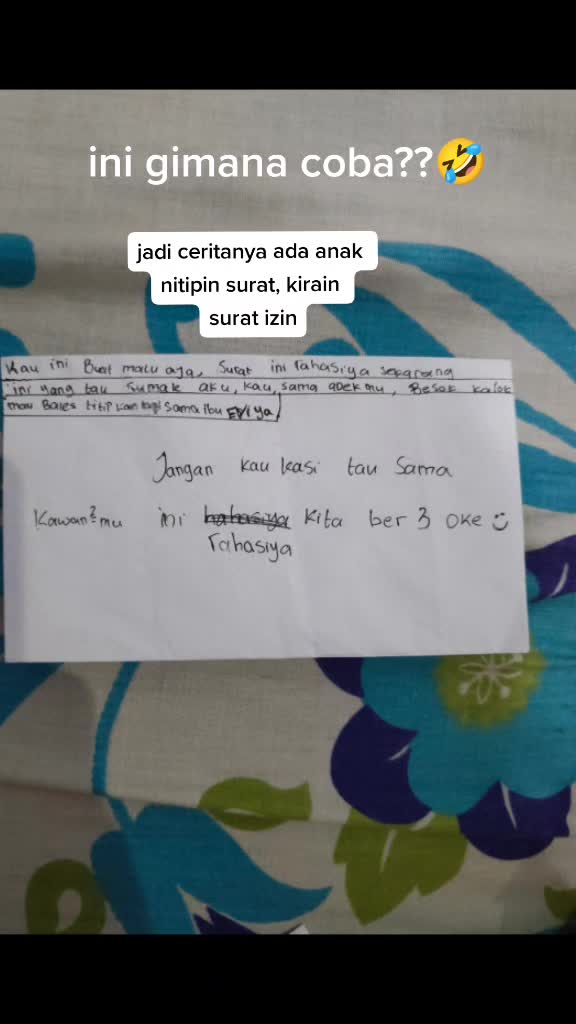 ini gimana coba??🤣
jadi ceritanya ada anak
nitipin surat, kirain
surat izin
Kau ini Buat malu aja, Surat ini rahasiya sekarang
ini yang tau Sumak aku, kau, sama adek mu, Besok kalok
mau Bales titip kan lagi Sama ibu EVi ya
Jangan kau kasi tau Sama
Kawan²mu ini hahasiya kita ber 3 oke
rahasiya